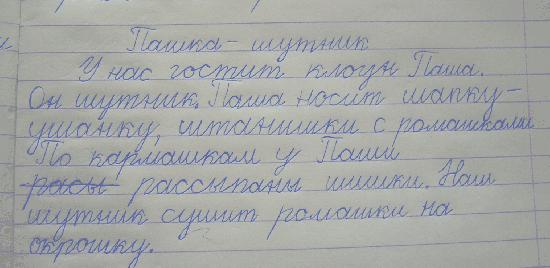 Пашка - шутник
У нас гостит клоун Паша.
Он шутник. Паша носит шапку-
ушанку, штанишки с ромашками
По кармашкам у Паши
расы рассыпаны шишки. Наш
шутник сушит ромашки на
окрошку.